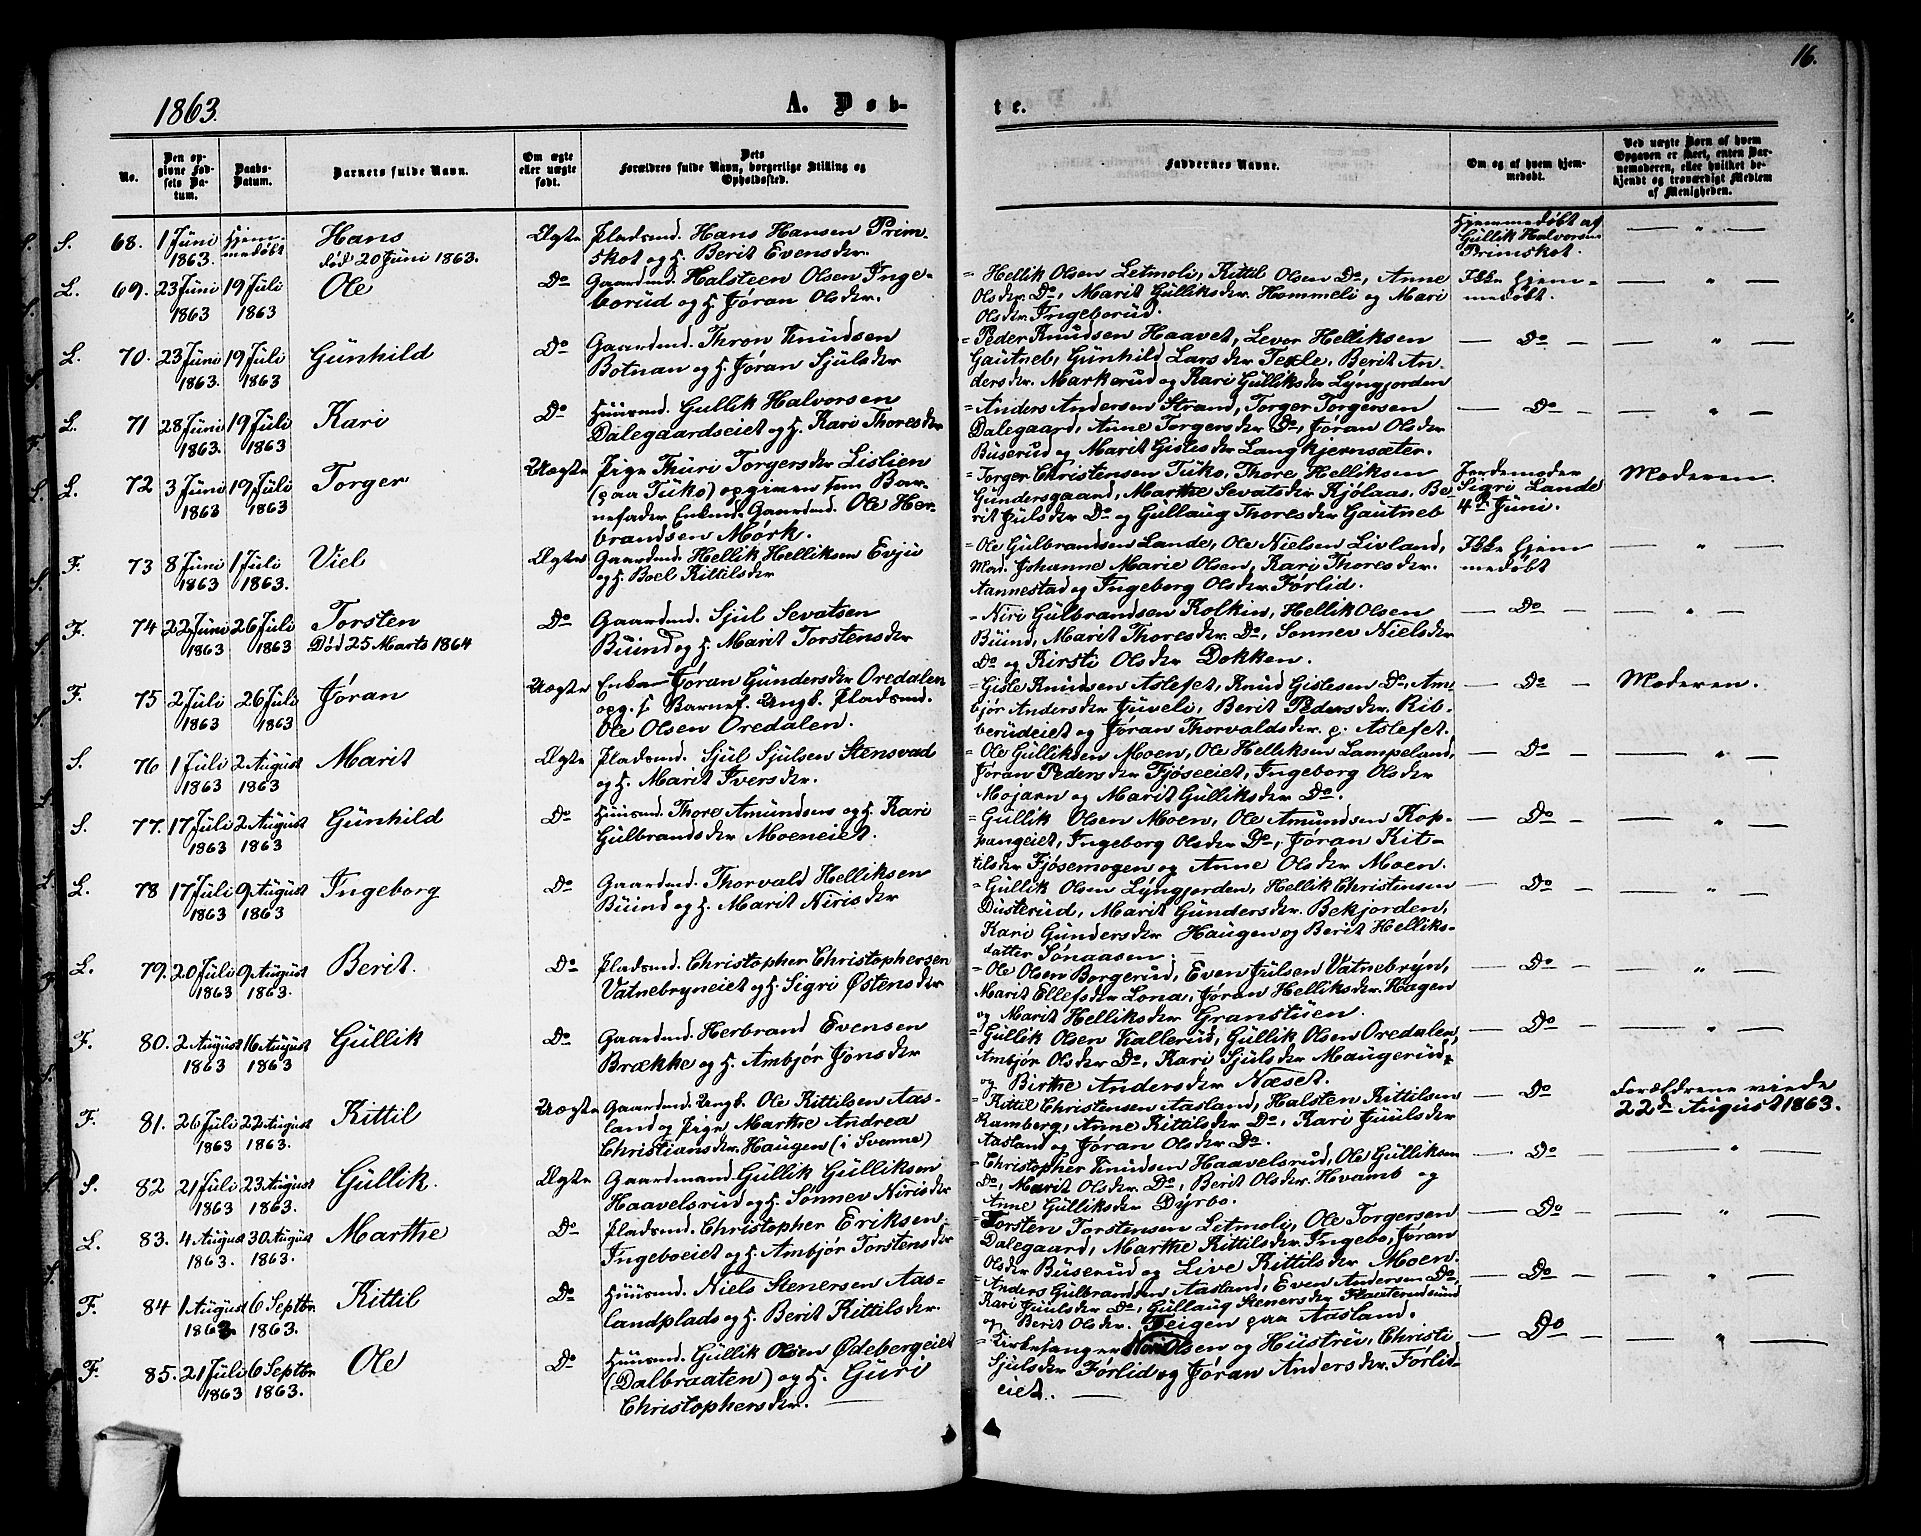 16.
1863. A. Døb-
te.
No.
Den opgivne Fødsels Datum.
Daabs-Datum.
Barnets fulde Navn.
Om ægte eller uægte født.
Dets Forældres fulde Navn, borgerlige Stilling og Opholdssted.
Faddernes Navne.
Om og af hvem hjemmedøbt.
Ved uægte Børn af hvem Opgaven er skeet, enten Barnemoderen, eller hvilket bekjendt og troværdigt Medlem af Menigheden.
S. 68. 1 Juni 1863. Hjemmedøbt Hans død 20 Juni 1863. Ægte
Pladsmd. Hans Hansen Prim-
skot og H. Berit Evensdtr.
Hjemmedøbt af
Gullik Halvorsen
Primskot.
L. 69. 23 Juni 1863 19 Juli 1863 Ole Do
Gaardmd. Halsteen Olsen Inge-
borud og H. Jøran Olsdtr.
= Hellik Olsen Letmoli, Kittil Olsen Do, Anne
Olsdtr. Do, Marit Gulliksdtr. Hommeli og Mari
Olsdtr. Ingeborud.
Ikke hjem-
medøbt.
L. 70. 23 Juni 1863. 19 Juli 1863 Gunhild Do
Gaardmd. Thron Knudsen
Botnan og H. Jøran Sjulsdtr
= Peder Knudsen Haavet, Levor Helliksen
Gautneb, Gunhild Larsdtr Texle, Berit An-
dersdtr. Markerud og Kari Gulliksdtr Lyngjorden
— Do —
L. 71 28 Juni 1863. 19 Juli 1863 Kari Do
Huusmd. Gullik Halvorsen
Dalegaardseiet og H. Kari Thoresdtr
= Anders Andersen Strand, Torger Torgersen
Dalegaard, Anne Torgersdtr Do, Jøran Olsdtr
Buserud og Marit Gislesdtr Langkjernsæter.
— Do —
L. 72 3 Juni 1863 19 Juli 1863 Torger Uægte
Pige Thuri Torgersdtr Lislien
(paa Tuko) opgiven som Bar-
nefader Enkmd. Gaardmd. Ole Her-
brandsen Mørk.
= Torger Christensen Tuko, Thore Helliksen
Gundersgaard, Marthe Sevatsdtr Kjølaas. Be-
rit Julsdtr Do og Gullaug Thoresdtr Gautneb
Jordemoder
Sigri Lande
4de Juni.
Moderen.
F. 73 8 Juni 1863 1 Juli 1863. Viel Ægte
Gaardmd. Hellik Helliksen Evju
og H. Boel Kittilsdtr
= Ole Gulbrandsen Lande, Ole Nielsen Livland,
Mad. Johanne Marie Olsen, Kari Thoresdtr.
Aannestad og Ingeborg Olsdtr Førlid.
Ikke hjem
medøbt
F. 74 22 Juni 1863 26 Juli 1863 Torsten Død 25 Marts 1864 Do
Gaardmd. Sjul Sevatsen
Buind og H. Marit Torstensdtr
= Niri Gulbrandsen Kolkin, Hellik Olsen
Buind, Marit Thoresdtr. Do, Sonnev Nielsdtr
Do og Kirsti Olsdtr Dokken.
— Do —
F. 75 2 Juli 1863 26 Juli 1863 Jøran Uægte
Enke Jøran Gundersdtr Oredalen
opg. s. Barnef. Ungk. Pladsmd.
Ole Olsen Oredalen.
= Gisle Knudsen Aslefet, Knud Gislesen Do, Am-
bjør Andersdtr Juveli, Berit Pedersdtr. Rib-
berudeiet og Jøran Thorvaldsdtr. p. Aslefet.
— Do —
Moderen.
S. 76 1 Juli 1863 2 August 1863 Marit Ægte
Pladsmd. Sjul Sjulsen Stensvad
og H. Marit Iversdtr.
= Ole Gulliksen Moen, Ole Helliksen Lampeland,
Jøran Pedersdtr Fjøseeiet, Ingeborg Olsdtr
Mojarn og Marit Gulliksdtr. Do.
— Do —
S. 77. 17 Juli 1863 2 August 1863 Gunhild Do
Huusmd. Thore Amundsens og H. Kari
Gulbrandsdtr Moeneiet.
= Gullik Olsen Moen, Ole Amundsen Kop-
pangeiet, Ingeborg Olsdtr Do, Jøran Kit-
tilsdtr Fjøsemogen og Anne Olsdtr Moen.
— Do —
L. 78 17 Juli 1863 9 August 1863 Ingeborg Do
Gaardmd. Thorvald Helliksen
Buind og H. Marit Nirisdtr
= Gullik Olsen Lyngjorden, Hellik Christensen
Dusterud, Marit Gundersdtr. Bekjorden,
Kari Gundersdtr Haugen og Berit Helliks-
datter Sønaasen.
— Do —
L. 79. 20 Juli 1863 9 August 1863. Berit. Do
Pladsmd. Christopher Christophersen
Vatnebryneiet og H. Sigri Østensdtr
= Ole Olsen Borgerud, Even Julsen Vatnebryn,
Marit Ellefsdtr Lona, Jøran Helliksdtr. Hagen
og Marit Helliksdtr Granstuen.
— Do —
F. 80. 2 August 1863 16 August 1863 Gullik Do
Gaardmd. Herbrand Evensen
Brække og H. Ambjør Jonsdtr
= Gullik Olsen Kallerud, Gullik Olsen Oredalen,
Ambjør Olsdtr Do, Kari Sjulsdtr Maugerud,
og Birthe Andersdtr Næset.
— Do —
F. 81. 26 Juli 1863 22 August 1863. Kittil Uægte
Gaardmd. Ungk. Ole Kittilsen Aas-
land og Pige Marthe Andrea
Christiansdtr. Haugen (i Svenne)
= Kittil Christensen Aasland, Halsten Kittilsen
Ramberg, Anne Kittilsdtr Do, Kari Juulsdtr
Aasland og Jøran Olsdtr Do.
— Do
Forældrene viede
22de August 1863.
S. 82 21 Juli 1863 23 August 1863. Gullik. Ægte
Gaardmand Gullik Gulliksen
Haavelsrud og H. Sønnev Nirisdtr
= Christopher Knudsen Haavelsrud, Ole Gulliksen
Do, Marit Olsdtr. Do, Berit Olsdtr. Hvamb og
Anne Gulliksdtr Dyrbo.
— Do —
L. 83. 4 August 1863. 30 August 1863. Marthe Do
Pladsmd. Christopher Eriksen
Ingeboeiet og H. Ambjør Torstensdtr
= Torsten Torstensen Letmoli, Ole Torgersen
Dalegaard, Marthe Kittilsdtr. Ingebo, Jøran
Olsdtr Buserud og Live Kittilsdtr. Moen.
— Do —
F. 84 1 August 1863. 6 Septbr. 1863. Kittil Do
Huusmd. Niels Stenersen Aas-
landplads og H. Berit Kittilsdtr.
= Anders Gulbrandsen Aasland, Even Andersen Do,
Kari Juulsdtr Do, Gullaug Stenersdtr
og Berit Olsdtr. Teigen paa Aasland.
— Do —
F. 85. 21 Juli 1863 6 Septbr 1863. Ole Do
Huusmd. Gullik Olsen Ødebergeiet
(Dalbraaten) og H. Guri
Christophersdtr.
= Kirkesanger Olsen og Hustru, Christi
Sjulsdtr Førlid og Jøran Andersdtr. Førlid-
eiet.
— Do —